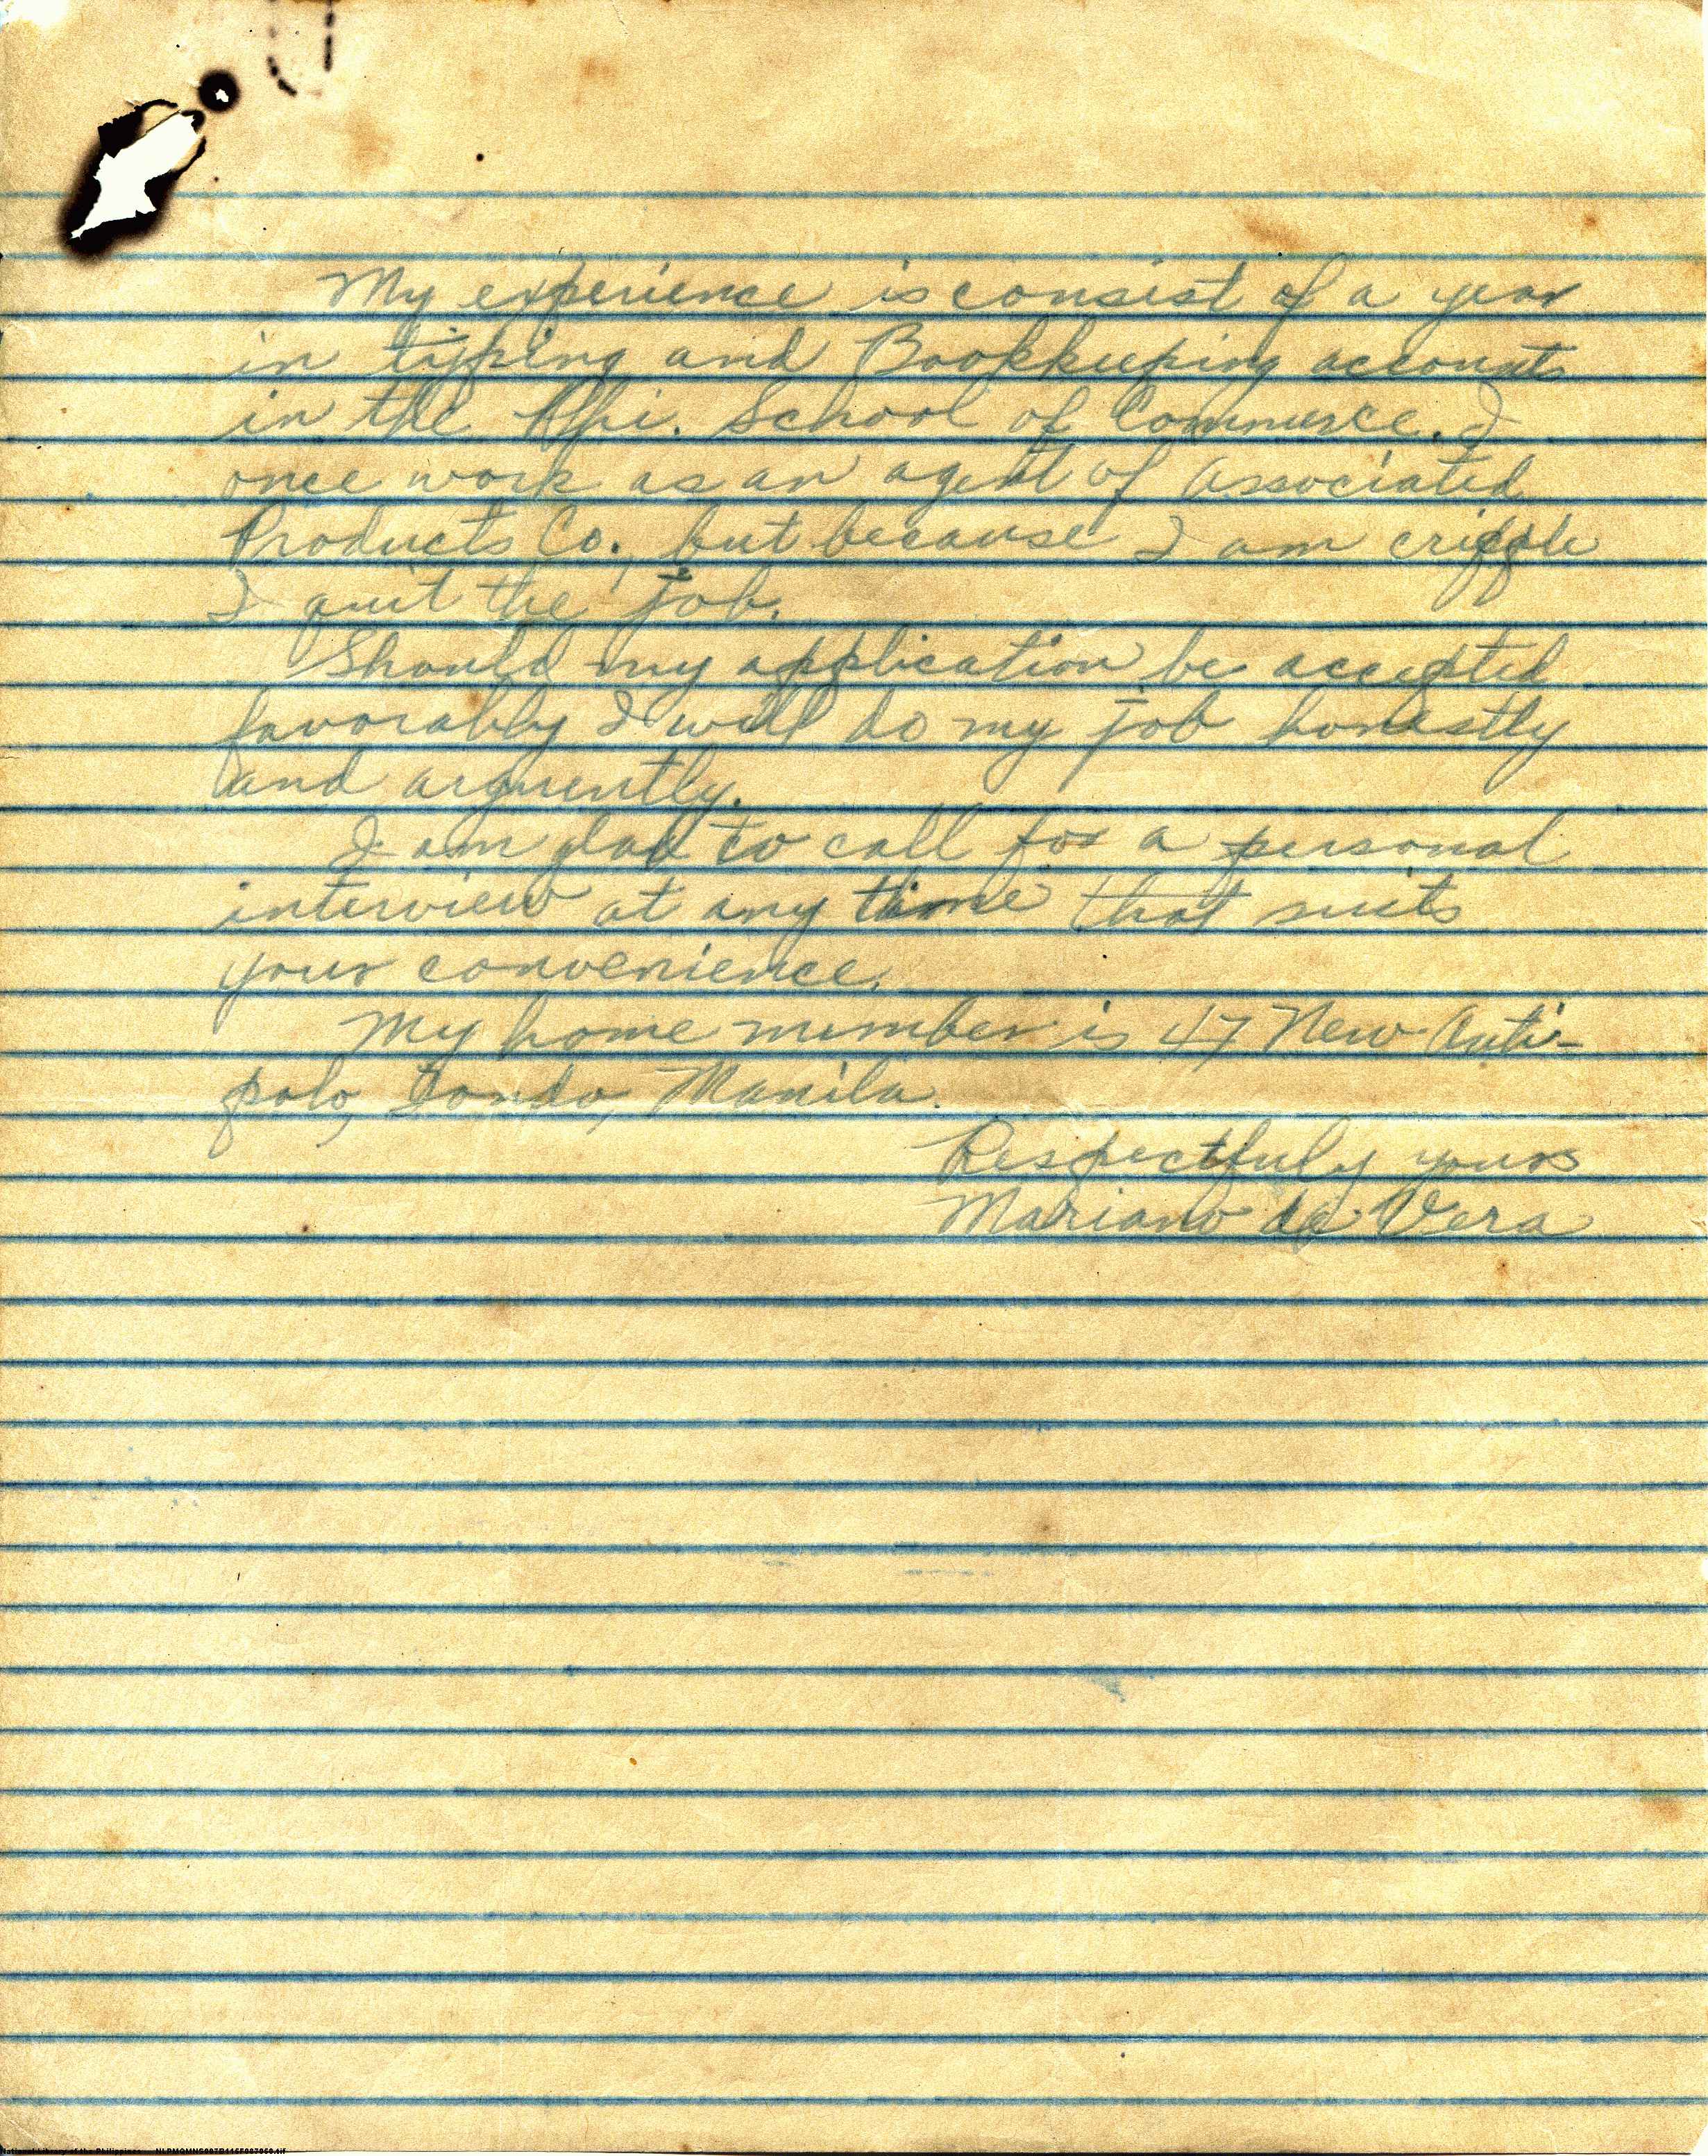 My experience is consist of a year
in typing and Bookkeeping accounts
in the Phi. School of Commerce. I
once work as an agent of Associated
Products Co., but because I am cripple
I quit the job.
Should my application be accepted
favorably I will do my job honestly
and arquently.
I am glad to call for a personal
interview at any time that suits
your convenience.
My home number is 47 New Anti-
polo, Tondo, Manila.
Respectfuly yours
Mariano de Vera
National Library of the Philippines